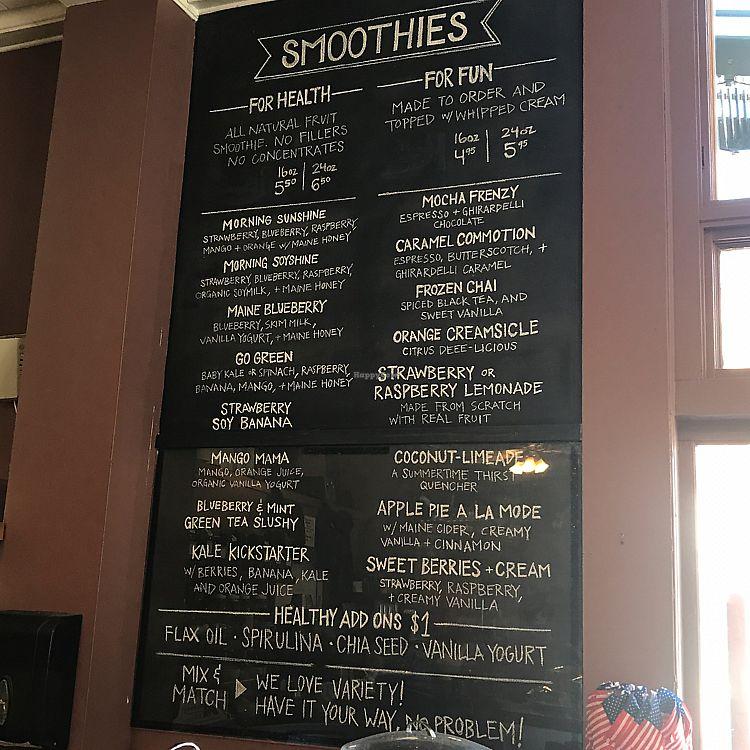 SMOOTHIES
FOR HEALTH
ALL NATURAL FRUIT
SMOOTHIE. NO FILLERS
NO CONCENTRATES
16oz | 24oz
5 50 | 6 50
MORNING SUNSHINE
STRAWBERRY, BLUEBERRY, RASPBERRY,
MANGO + ORANGE W/ MAINE HONEY
MORNING SOYSHINE
STRAWBERRY, BLUEBERRY, RASPBERRY,
ORGANIC SOYMILK, + MAINE HONEY
MAINE BLUEBERRY
BLUEBERRY, SKIM MILK,
VANILLA YOGURT, + MAINE HONEY
GO GREEN
BABY KALE OR SPINACH, RASPBERRY,
BANANA, MANGO, + MAINE HONEY
STRAWBERRY
SOY BANANA
MANGO MAMA
MANGO, ORANGE JUICE,
ORGANIC VANILLA YOGURT
BLUEBERRY & MINT
GREEN TEA SLUSHY
KALE KICKSTARTER
W/ BERRIES, BANANA, KALE
AND ORANGE JUICE
FOR FUN
MADE TO ORDER AND
TOPPED W/ WHIPPED CREAM
16oz | 24oz
4 95 | 5 95
MOCHA FRENZY
ESPRESSO + GHIRARDELLI
CHOCOLATE
CARAMEL COMMOTION
ESPRESSO, BUTTERSCOTCH, +
GHIRARDELLI CARAMEL
FROZEN CHAI
SPICED BLACK TEA, AND
SWEET VANILLA
ORANGE CREAMSICLE
CITRUS DEEE-LICIOUS
STRAWBERRY OR
RASPBERRY LEMONADE
MADE FROM SCRATCH
WITH REAL FRUIT
COCONUT-LIMEADE
A SUMMERTIME THIRST
QUENCHER
APPLE PIE A LA MODE
W/ MAINE CIDER, CREAMY
VANILLA + CINNAMON
SWEET BERRIES + CREAM
STRAWBERRY, RASPBERRY,
+ CREAMY VANILLA
HEALTHY ADD ONS $1
FLAX OIL · SPIRULINA · CHIA SEED · VANILLA YOGURT
MIX &
MATCH
WE LOVE VARIETY!
HAVE IT YOUR WAY, NO PROBLEM!